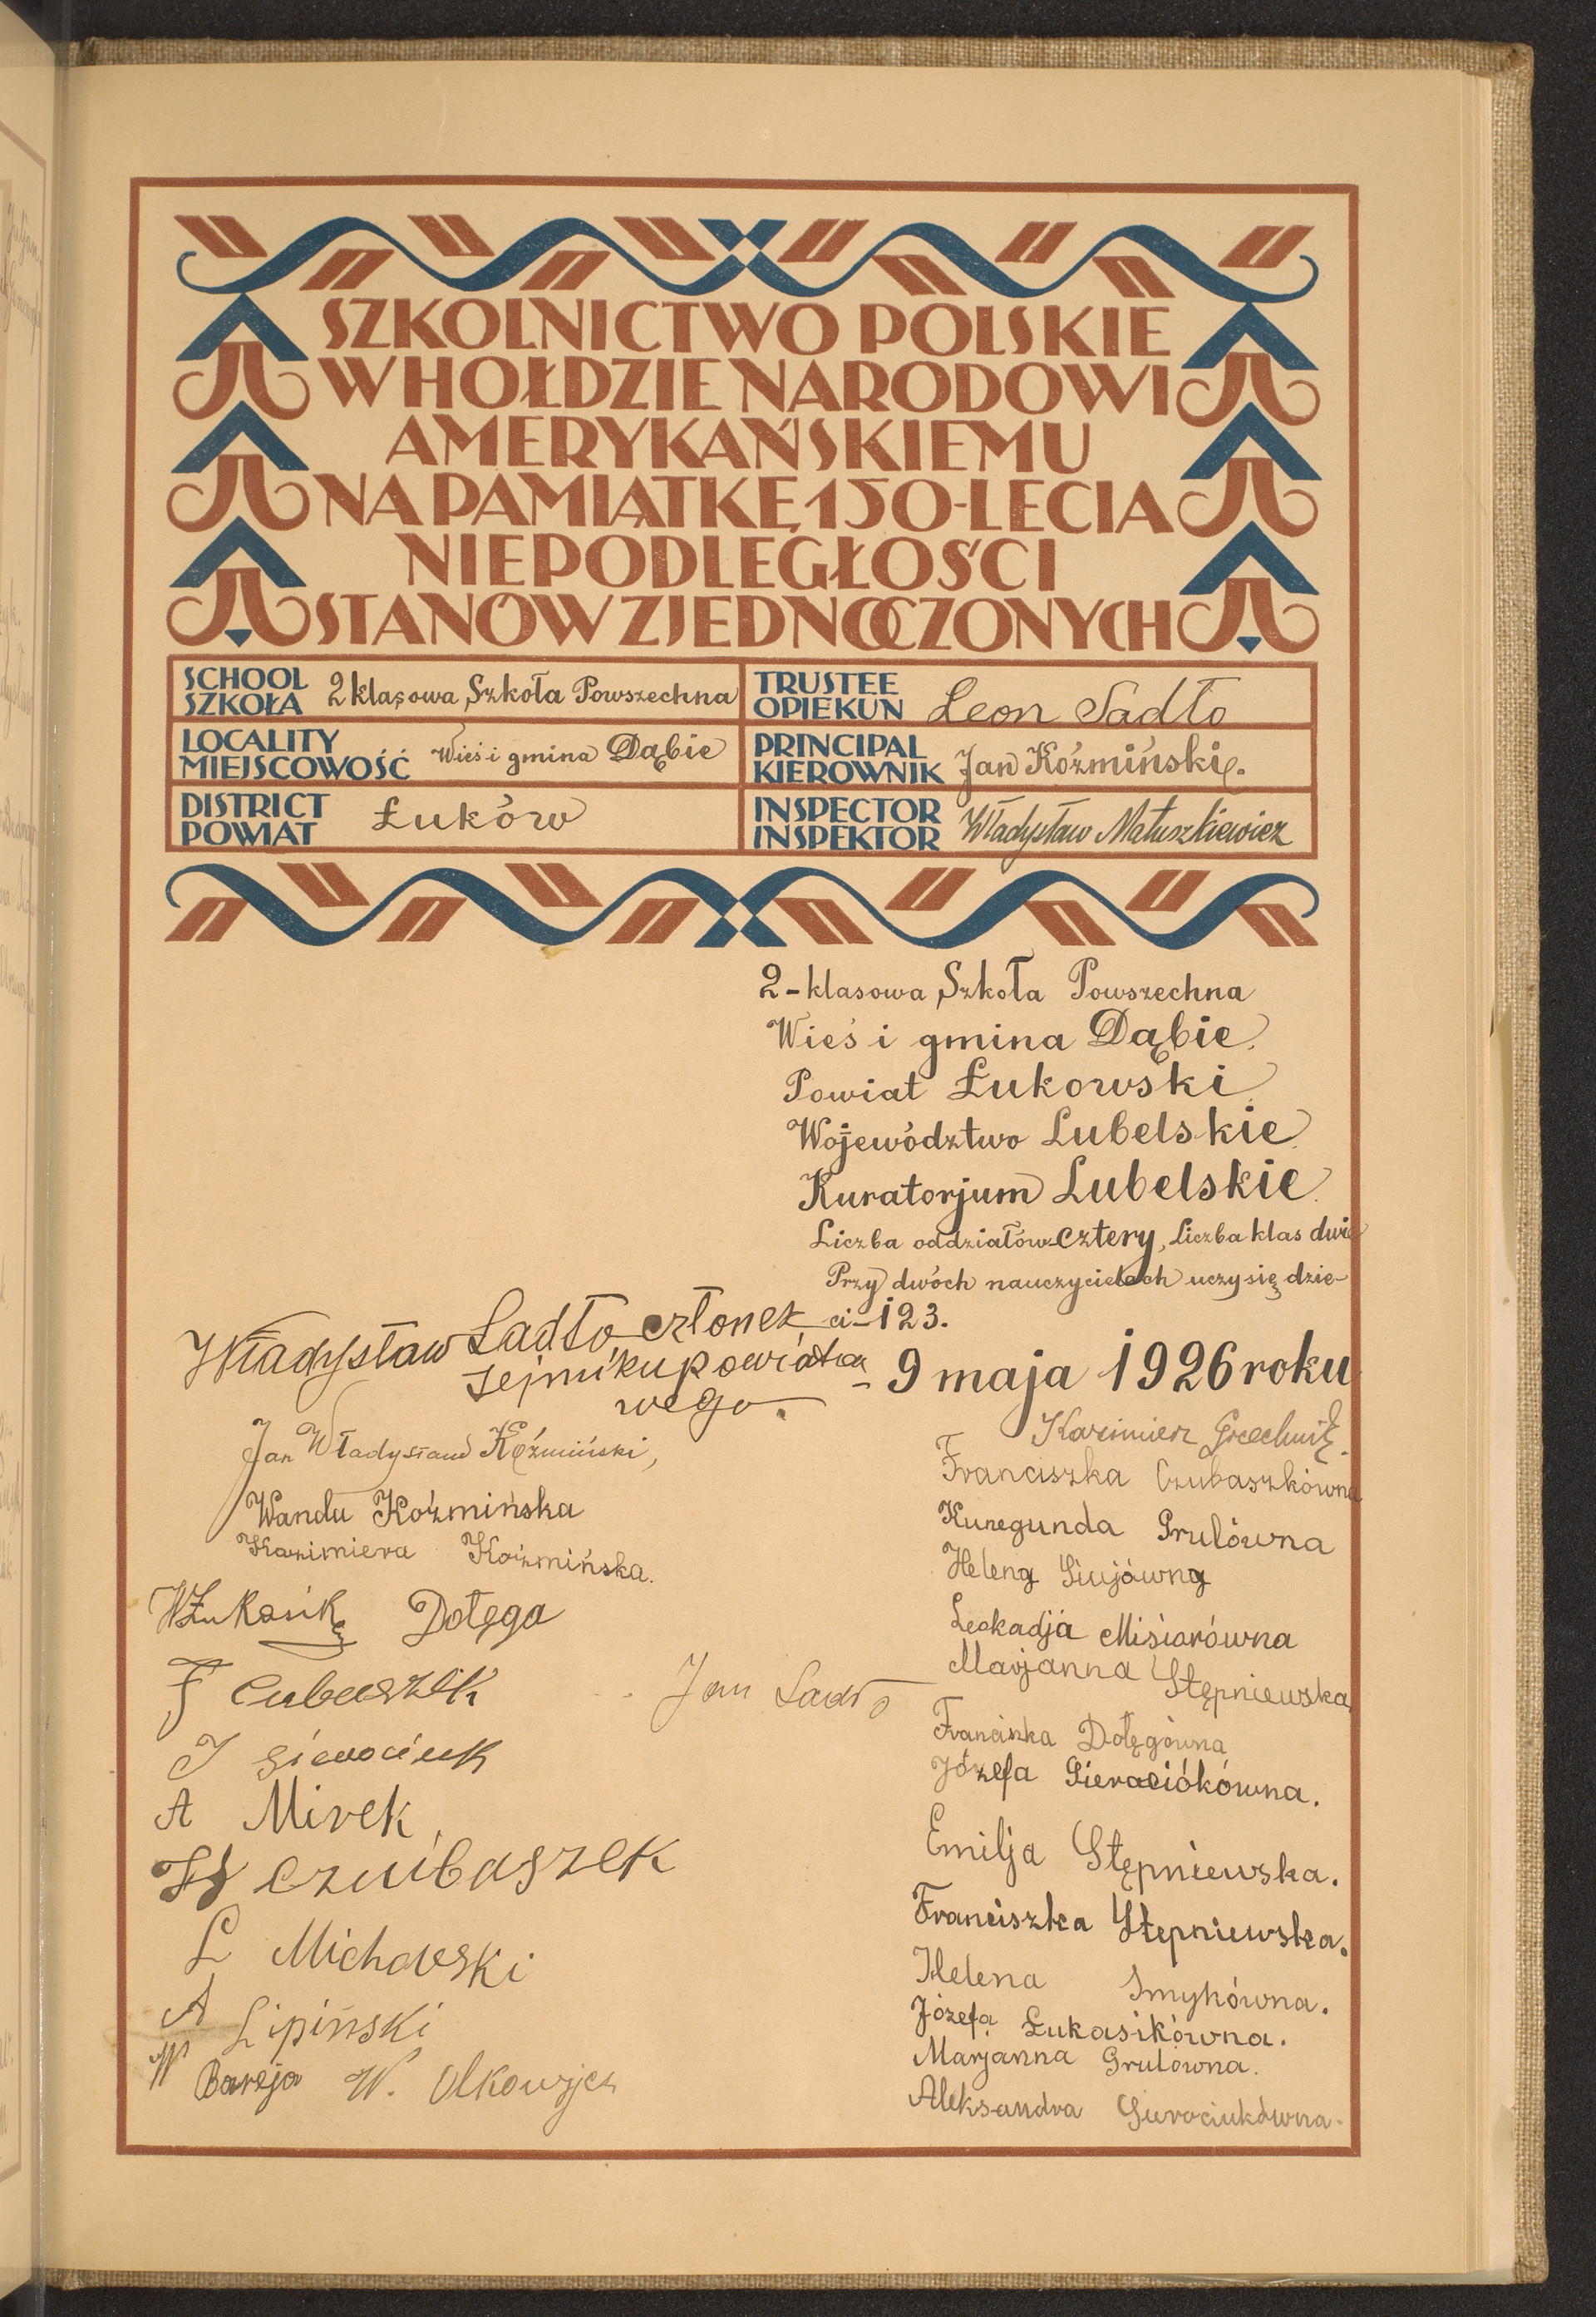 SZKOLNICTWO POLSKIE
W HOŁDZIE NARODOWI
AMERYKAŃSKIEMU
NA PAMIĄTKĘ 150-LECIA
NIEPODLEGŁOŚCI
STANÓW ZJEDNOCZONYCH
SCHOOL
SZKOŁA 2 klasowa Szkoła Powszechna
TRUSTEE
OPIEKUN Leon Sadło
LOCALITY
MIEJSCOWOŚĆ Wieś i gmina Dąbie
PRINCIPAL
KIEROWNIK Jan Koźmiński.
DISTRICT
POWIAT Łuków
INSPECTOR
INSPEKTOR Władysław Matuszkiewicz
2-klasowa Szkoła Powszechna
Wieś i gmina Dąbie.
Powiat Łukowski
Województwo Lubelskie.
Kuratorjum Lubelskie.
Liczba oddziałów-cztery, liczba klas dwie
Przy dwóch nauczycielach uczy się dzie-
ci-123.
9 maja 1926 roku
Władysław Sadło członek
sejmiku powiato
wego.
Jan Władysław Koźmiński,
Wanda Koźmińska
Kazimiera Koźmińska.
WŁukasik Dołęga
F Cubaszek
J Sierociuk
A Mirek
Czuibaszek
L Michavski
A Lipiński
W Bareja W. Olkowicz
Jan Sadło
Kazimierz
Franciszka Czubaszkówna
Kunegunda Prulówna
Helena
Leokadja Misiarówna
Marjanna Stępniewska
Franciszka Dołęgówna
Józefa Sieraciókówna.
Emilja Stępniewska.
Franciszka Stępniewska.
Helena Smykówna.
Józefa Łukasikówna.
Marjanna Grulówna.
Aleksandra Sierociukówna.